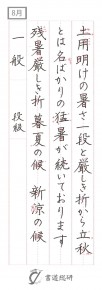 8月
土用明けの暑さ一段と厳しき折から立秋
とは名ばかりの猛暑が続いております
残暑厳しき折 暮夏の候 新涼の候
一般
段級
書道総研